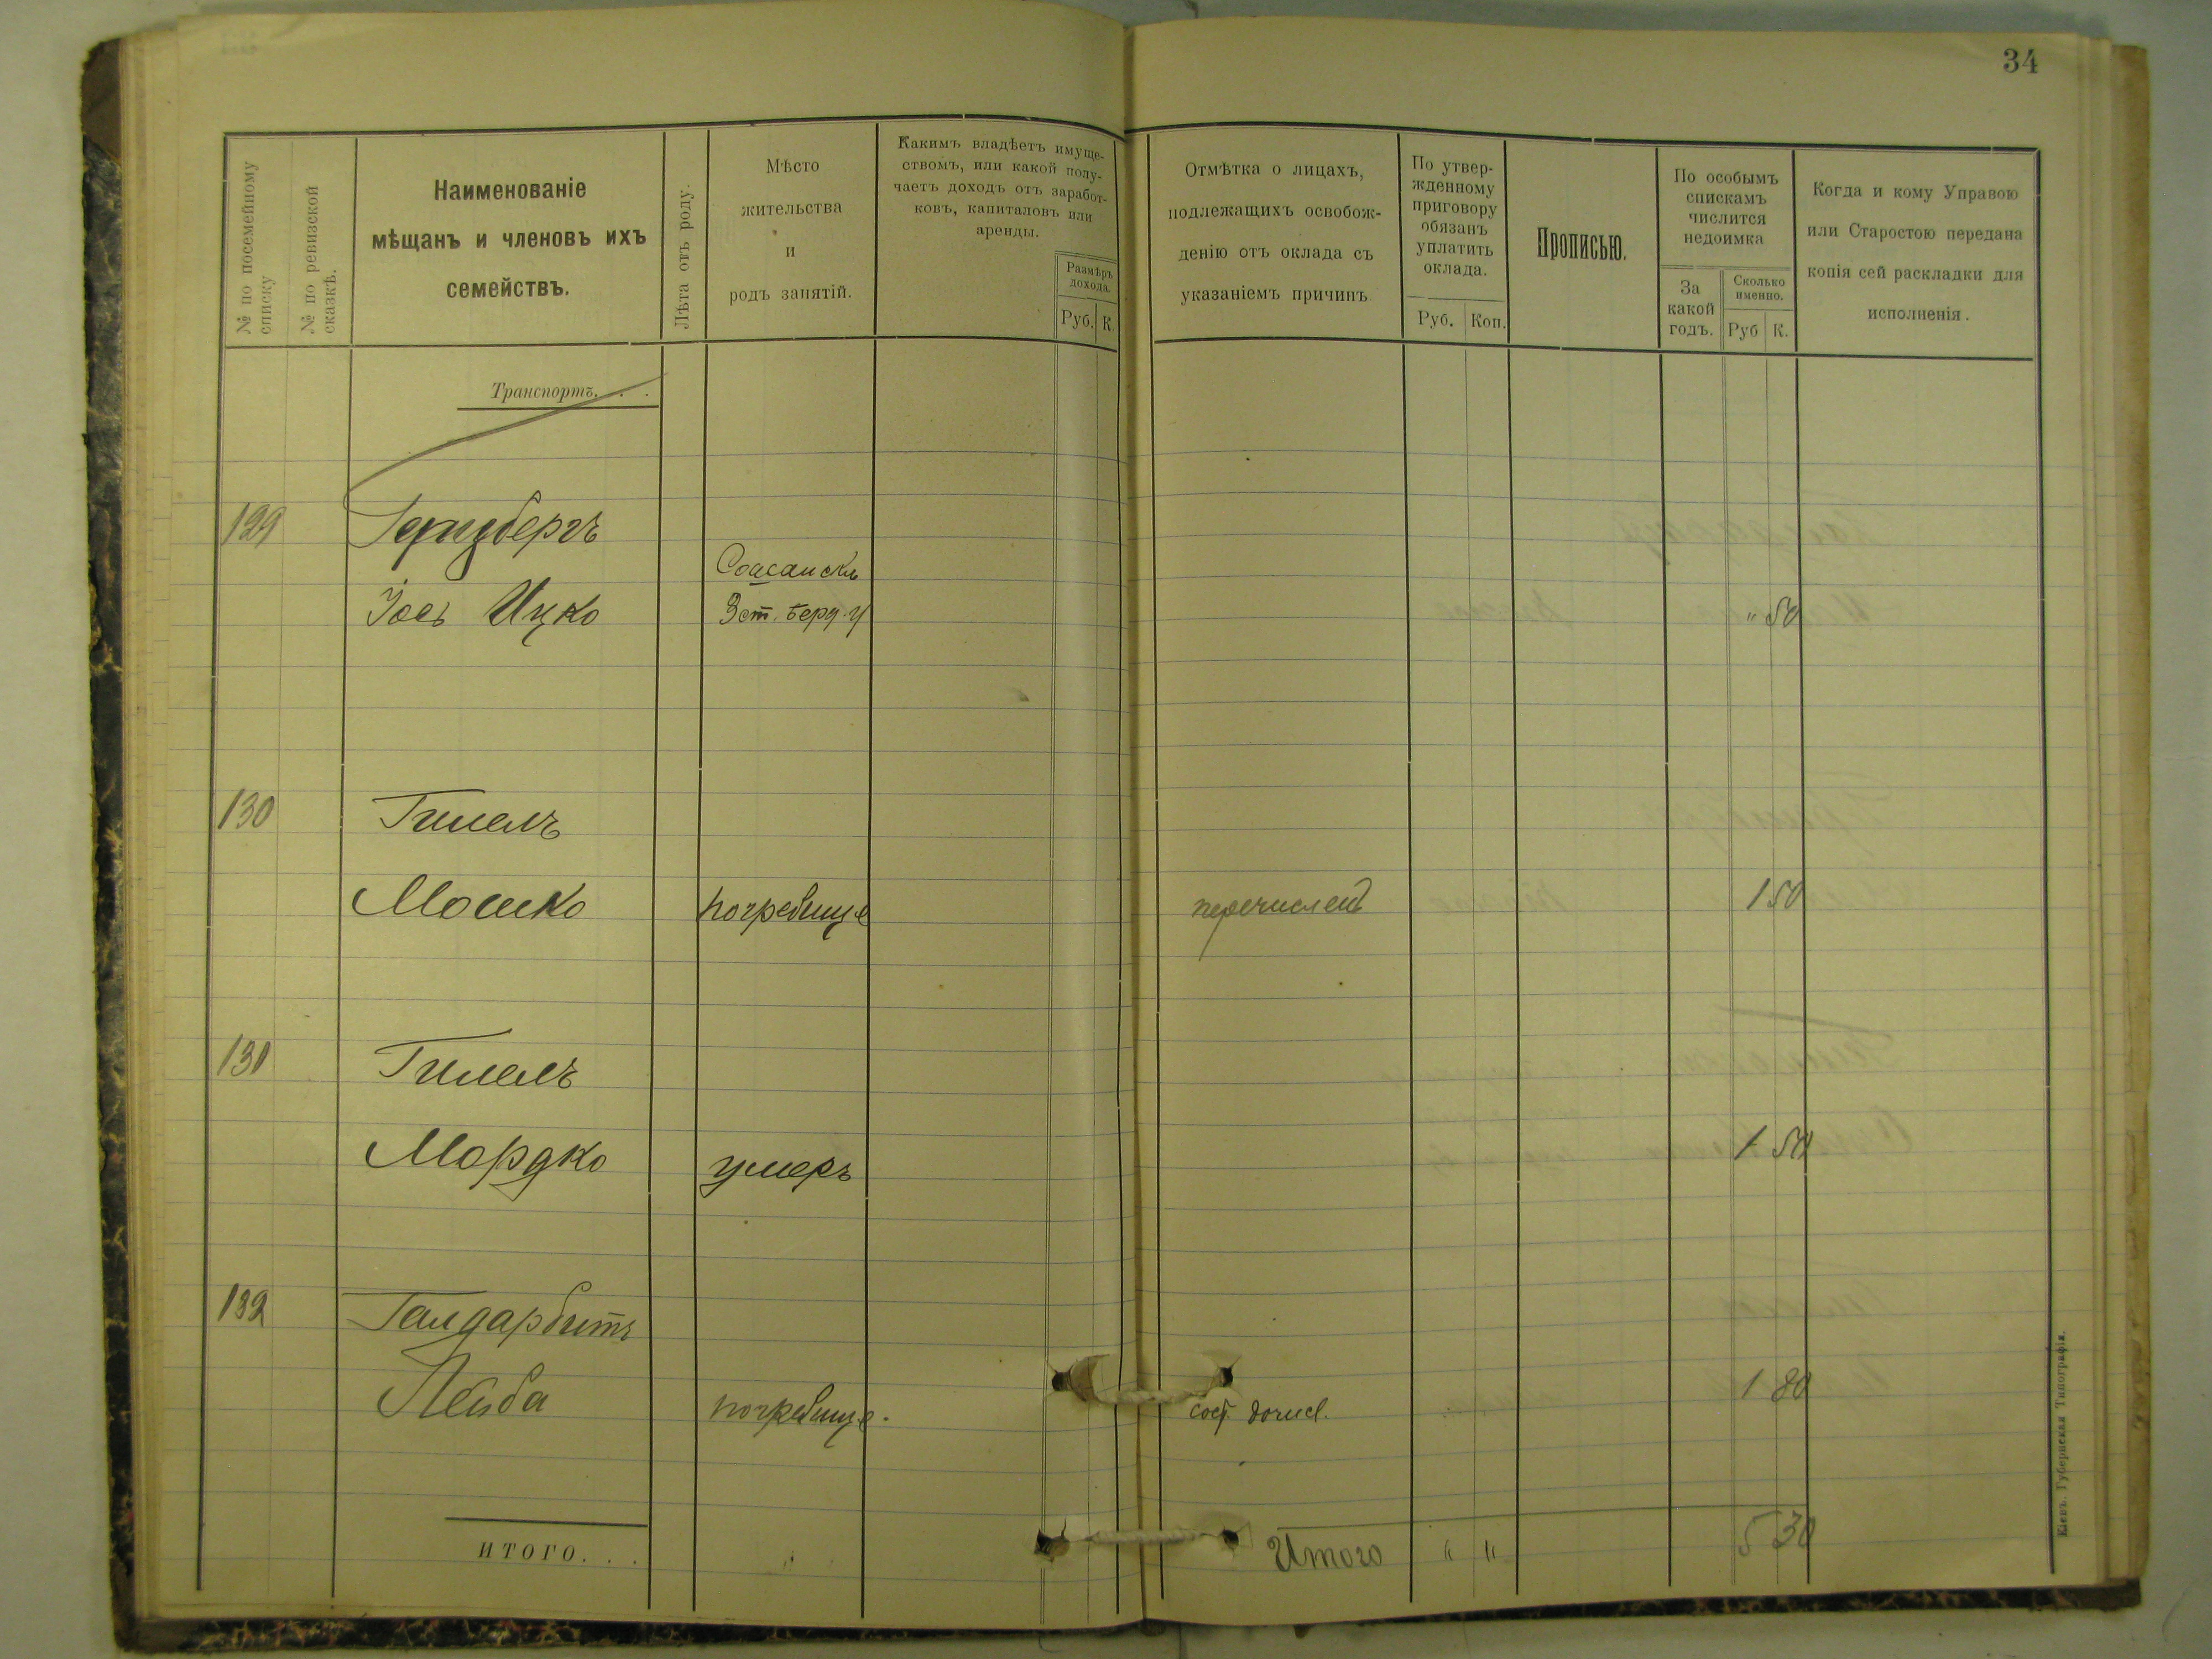 34
№ по посемейному списку
№ по ревизской сказкѣ.
Наименованіе
мѣщанъ и членовъ ихъ
семействъ.
Лѣта отъ роду.
Мѣсто
жительства
и
родъ занятій.
Какимъ владѣетъ имуще-
ствомъ, или какой полу-
чаетъ доходъ отъ заработ-
ковъ, капиталовъ или
аренды.
Размѣръ
дохода.
Руб. К.
Отмѣтка о лицахъ,
подлежащихъ освобож-
денію отъ оклада съ
указаніемъ причинъ
По утвер-
жденному
приговору
обязанъ
уплатить
оклада.
Руб. Коп.
Прописью.
По особымъ
спискамъ
числится
недоимка
За
какой
годъ.
Сколько
именно.
Руб К.
Когда и кому Управою
или Старостою передана
копія сей раскладки для
исполненія.
Транспортъ. . .
129 Герцбергъ
Іось Ицко Берд. у " 50
130 Гилелъ
Мошко погребище перечислен 1 50
131 Гилелъ
Мордко умеръ 1 50
132
Лейба погребище. 1 80
ИТОГО. . .
Итого " " 5 30
Кіевъ. Губернская Типографія.